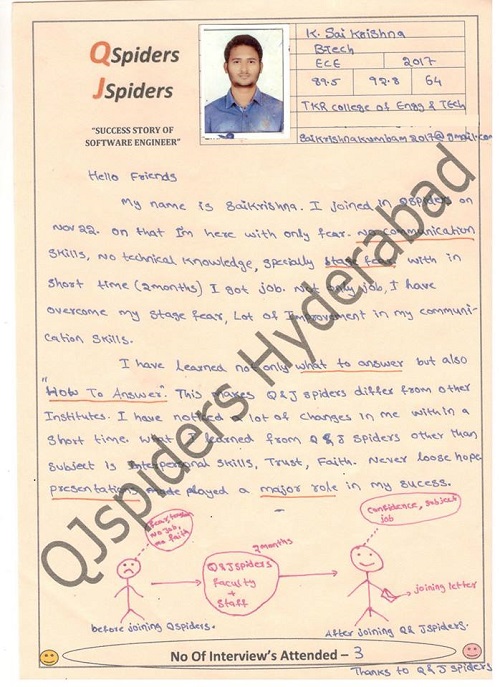 QSpiders
JSpiders
"SUCCESS STORY OF
SOFTWARE ENGINEER"
K. Sai Krishna
BTech
ECE 2017
89.5 92.8 64
TKR College of Engg & TEch
Saikrishnakumbam2017@gmail.com
Hello Friends
My name is SaiKrishna. I joined in QSpiders on
Nov 22. on that I'm here with only fear. No communication
skills, No technical knowledge, specially stage fear with in
short time (2months) I got job. Not only job, I have
overcome my stage fear, Lot of Improvement in my communi-
cation skills.
I have Learned not only what to answer but also
"How To Answer". This makes Q&J spiders differ from other
Institutes. I have noticed a lot of changes in me within a
short time. What I learned from Q & J spiders other than
subject is Interpersonal skills, Trust, Faith. Never loose hope
presentations made played a major role in my sucess.
No job,
no faith
before joining Qspiders.
2months
Q&J Spiders
Faculty
+
Staff
confidence, subject
job
joining letter
After joining Q& Jspiders.
No Of Interview's Attended – 3
Thanks to Q & J spiders
QJspiders Hyderabad